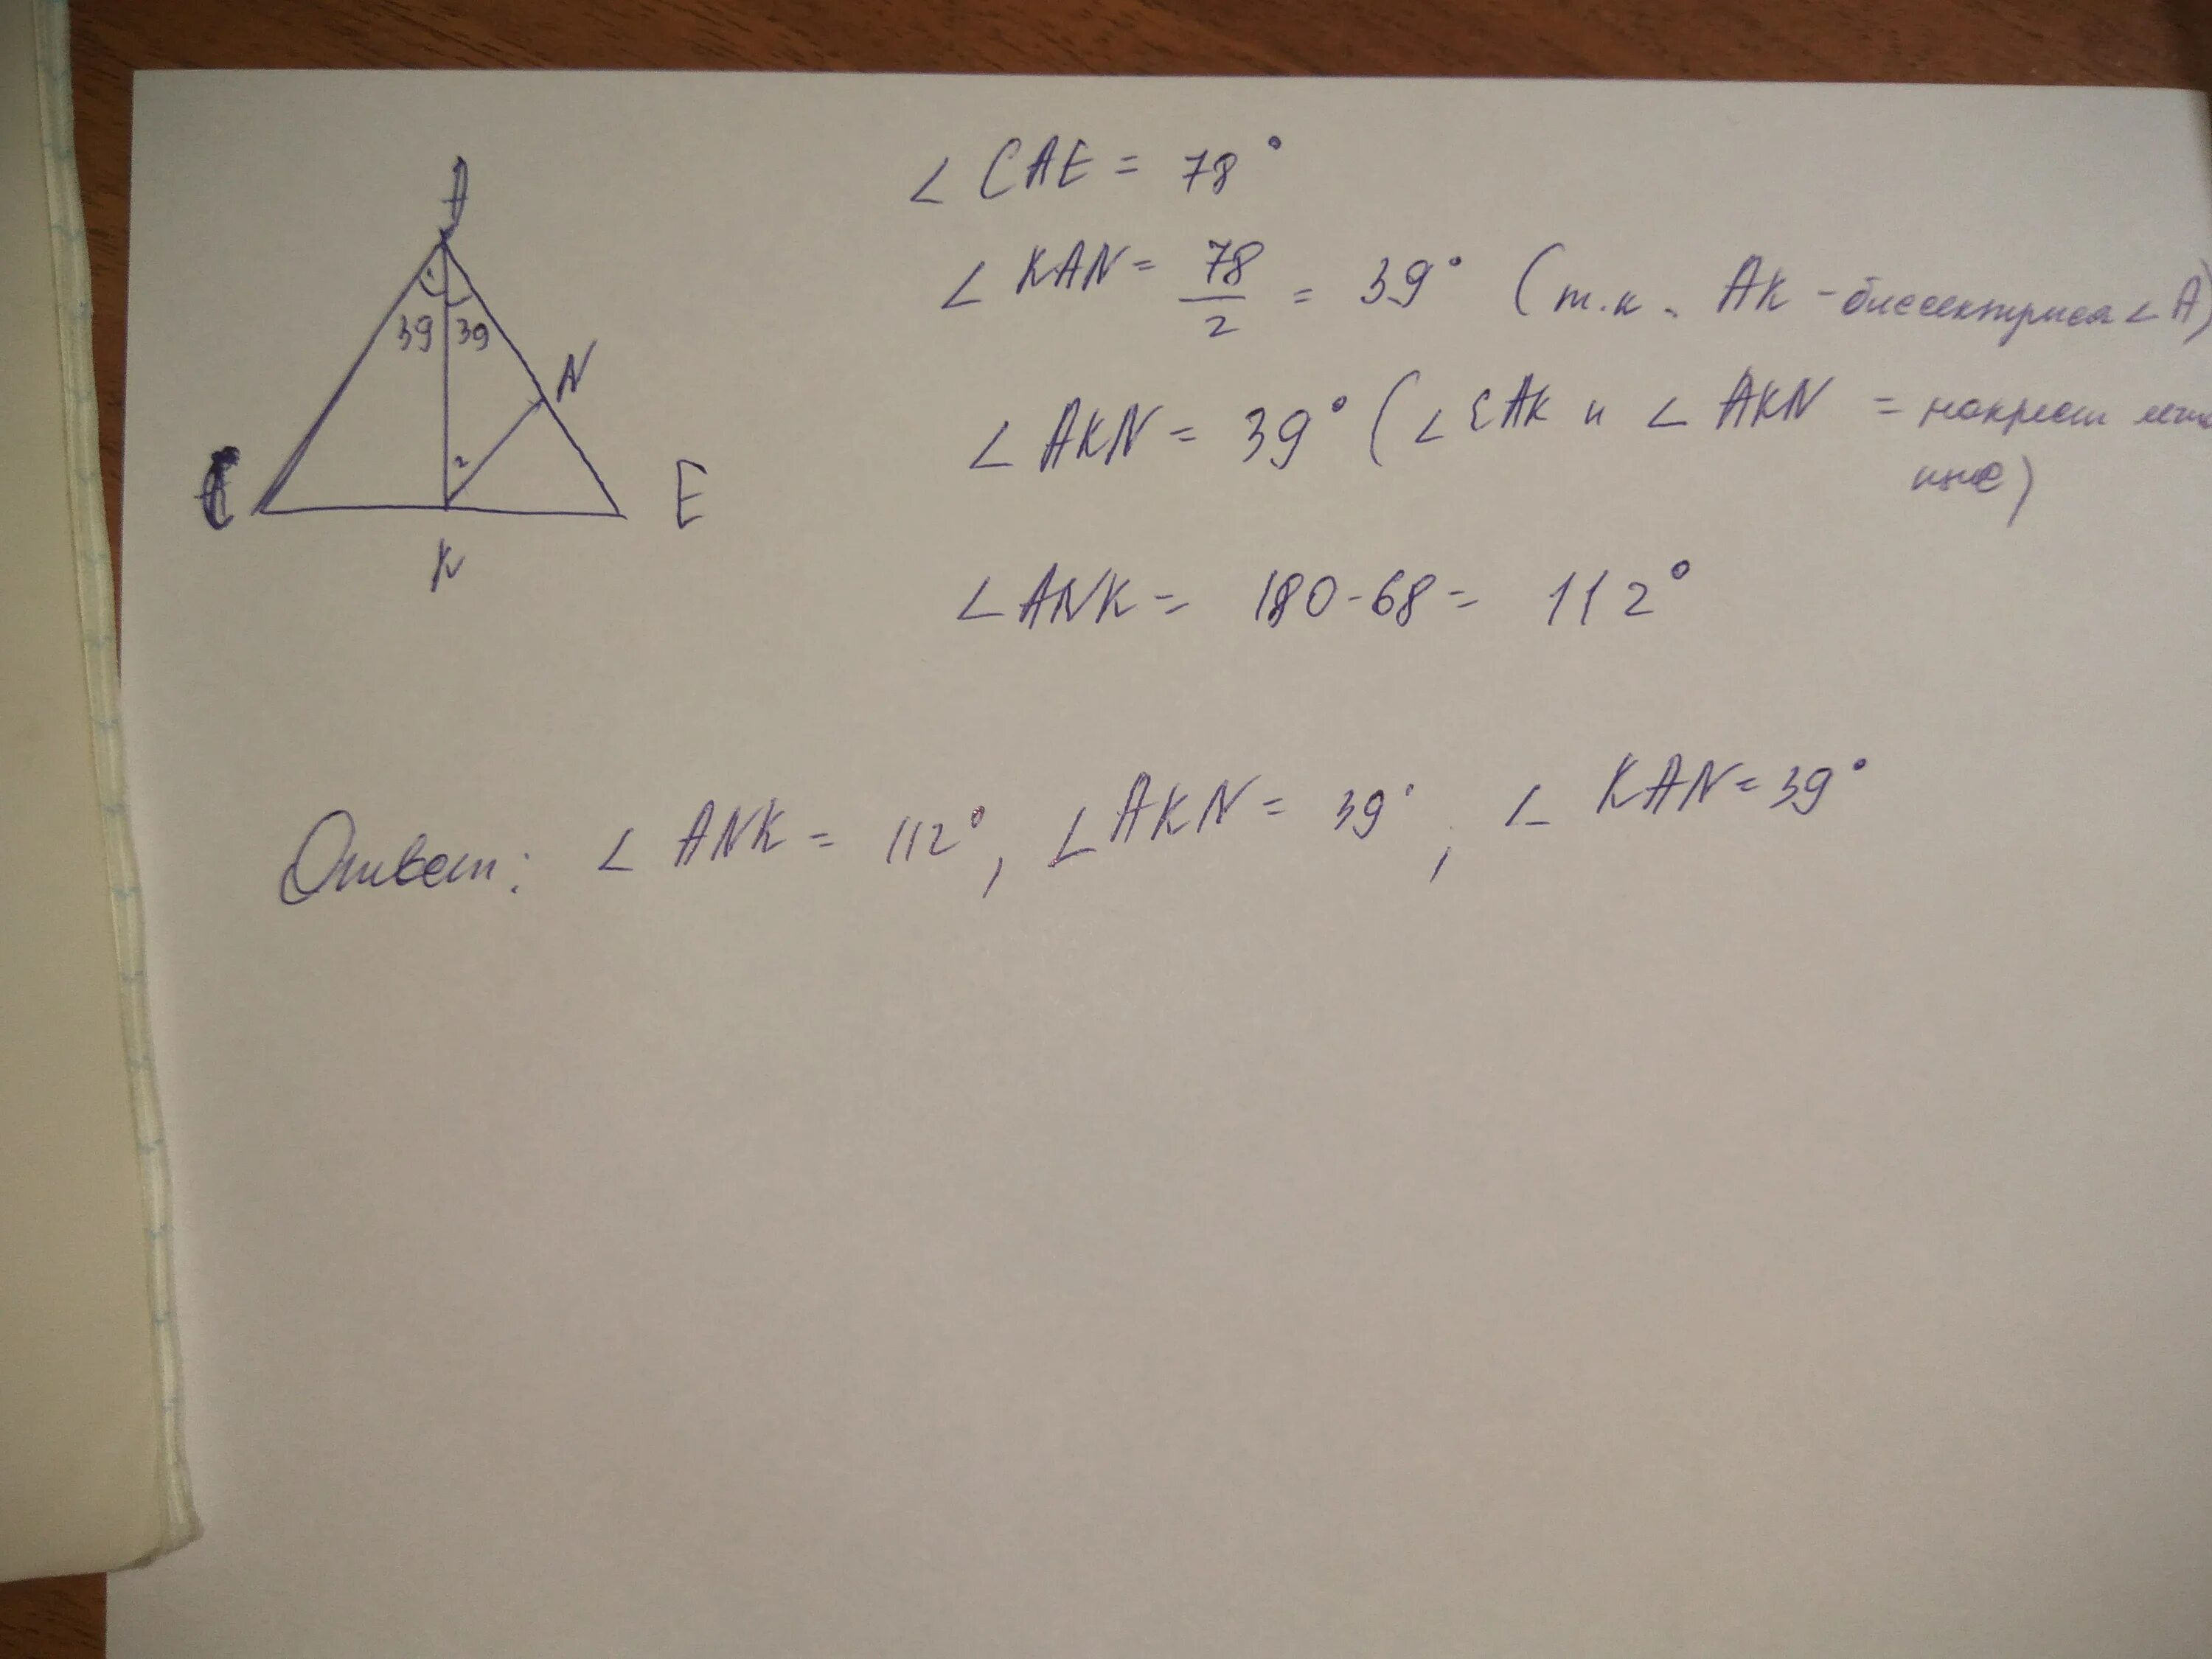 A
1
39 39
N
2
C
E
K
∠ CAE = 78°
∠ KAN = 78/2 = 39° (т.к. AK - биссектриса ∠ A)
∠ AKN = 39° (∠ CAK и ∠ AKN = накрест
∠ ANK = 180-68 = 112°
Ответ: ∠ ANK = 112°, ∠ AKN = 39°, ∠ KAN = 39°